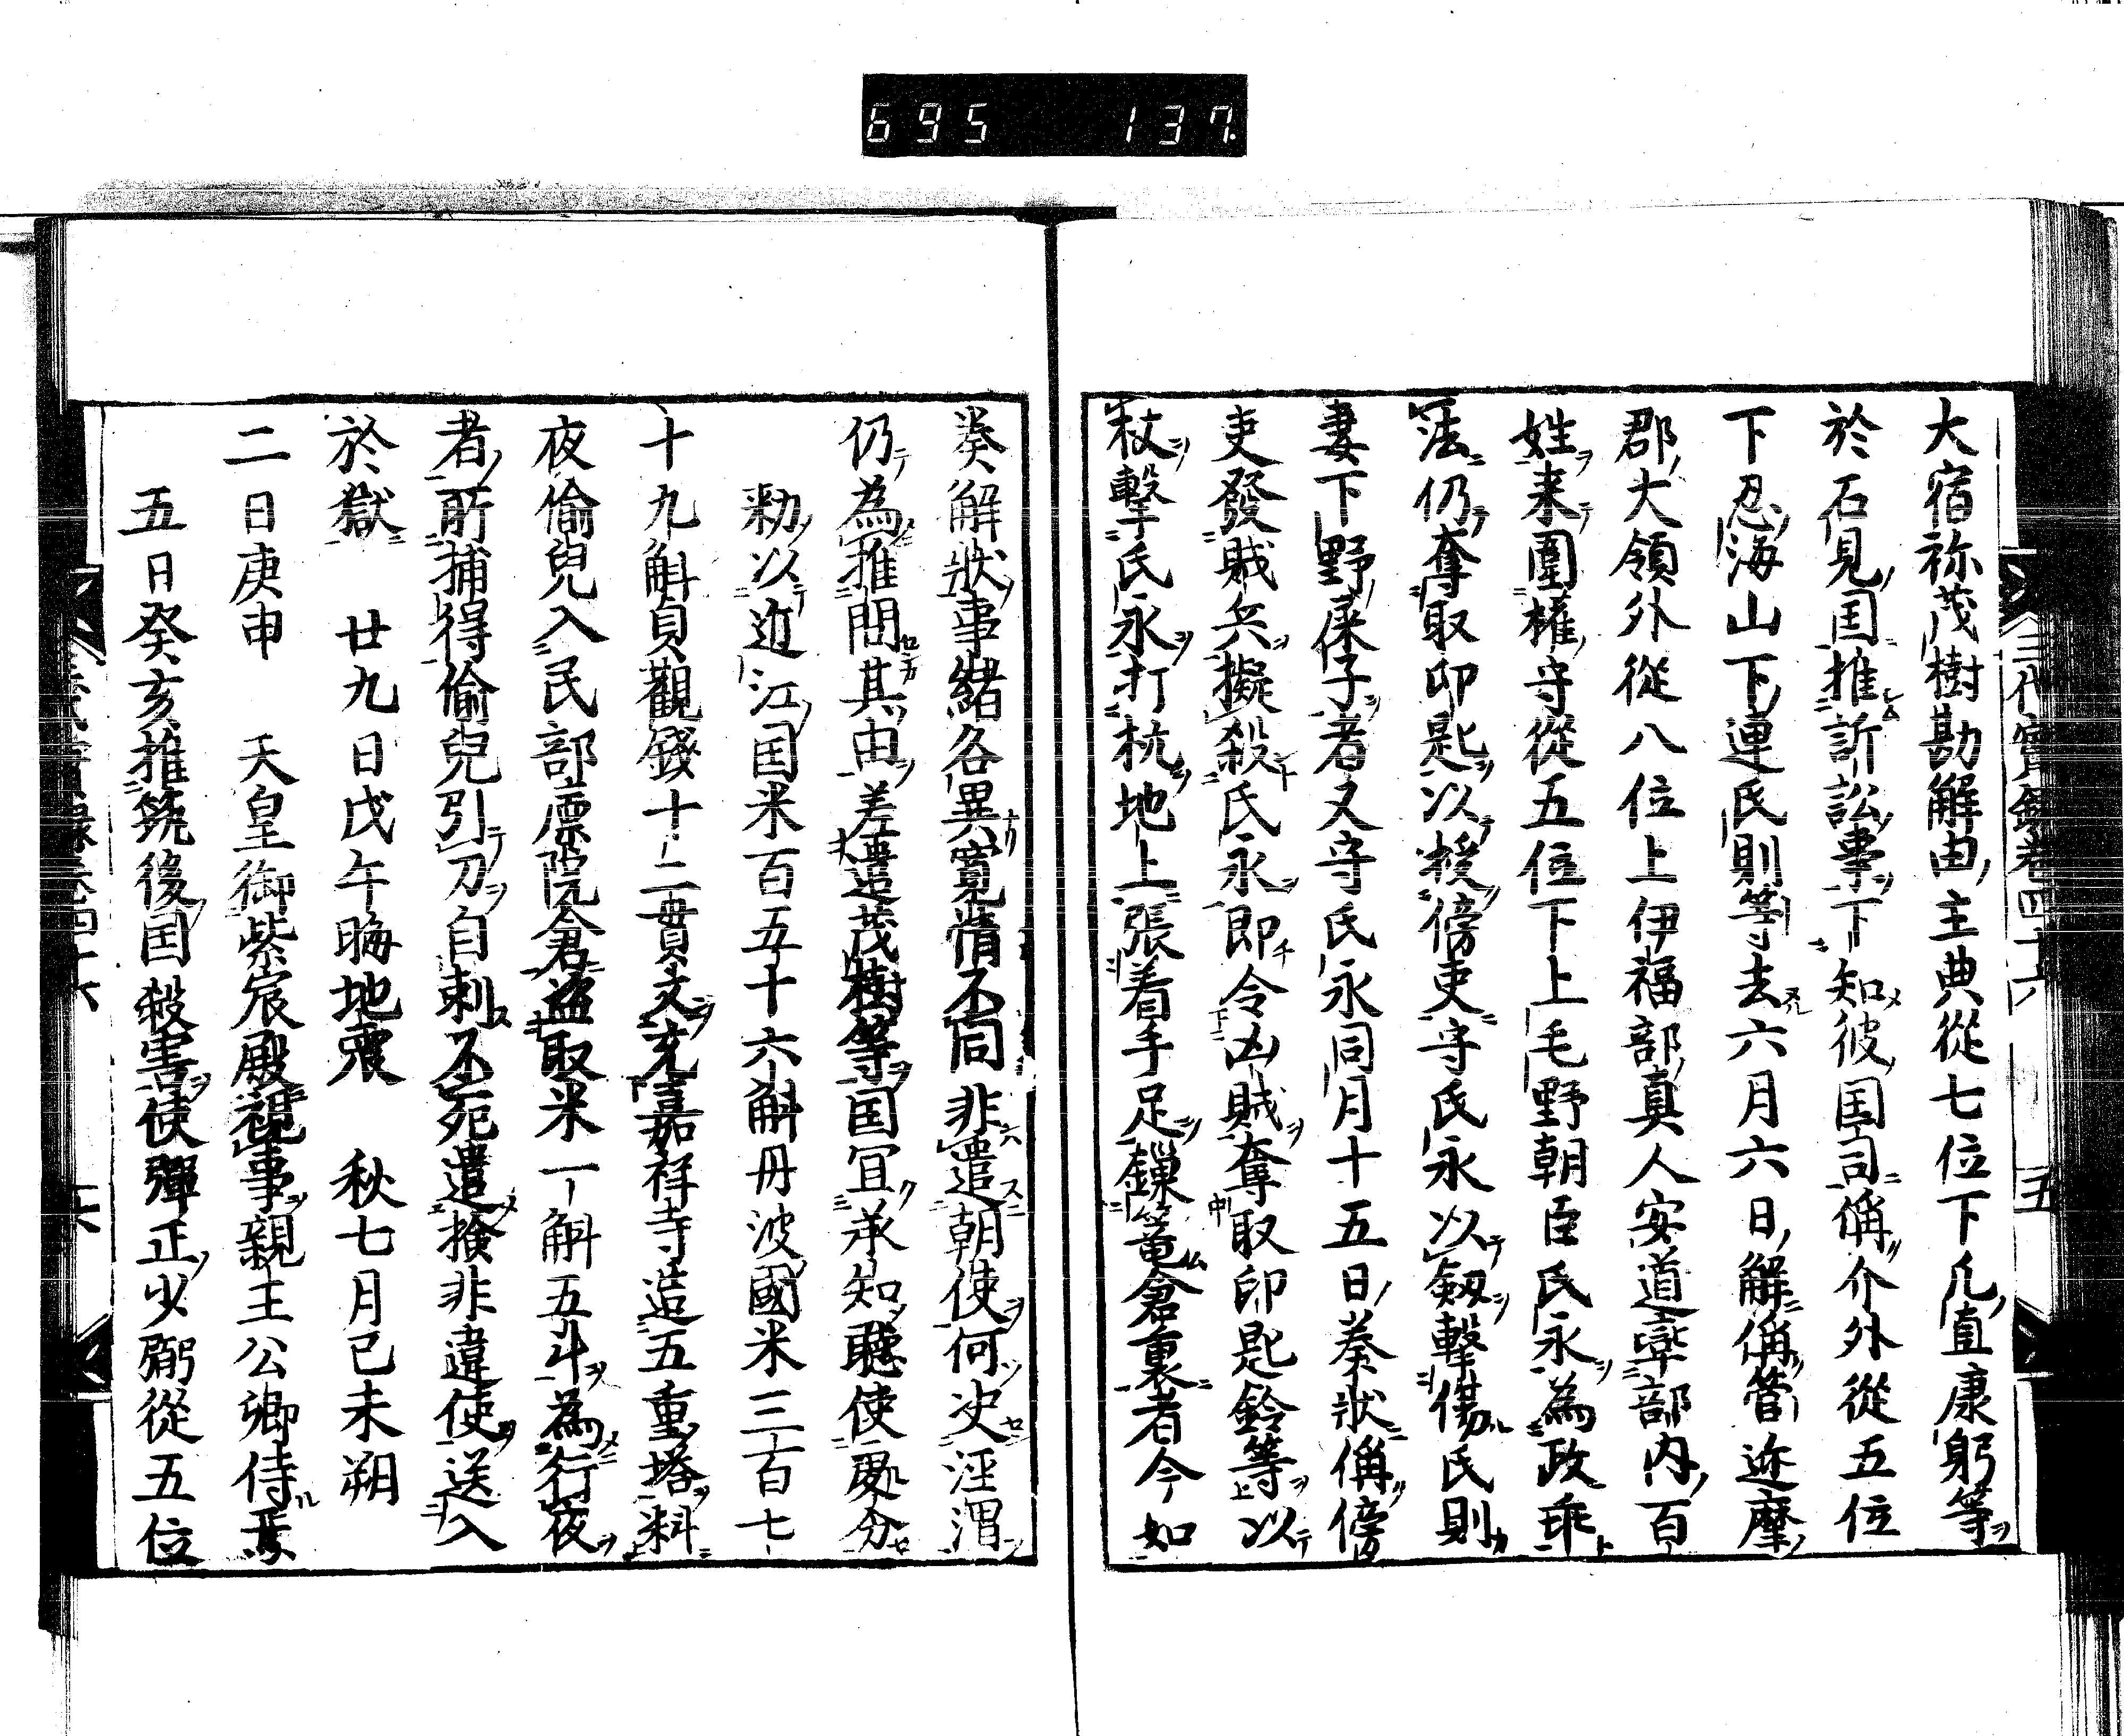 695 137.
三代實錄卷四十六 五
大宿祢茂樹勘解由主典從七位下凡直康躬等
於石見国推訴訟事下知彼国司偁介外從五位
下忍海山下連氏則等去六月六日解偁管迩摩
郡大領外從八位上伊福部真人安道率部内百
姓来圍權守從五位下上毛野朝臣氏永為政乖
法仍奪取印匙以授傍吏守氏永以釼擊傷氏則
妻下野屎子者又守氏永同月十五日奏狀偁傍
吏發賊兵擬殺氏永即令凶賊奪取印匙鈴等以
杖擊氏永打杭地上張着手足鏁篭倉裏者今如
奏解狀事緒各異寛情不同非遣朝使何决涇渭
仍為推問其由差遣茂樹等国宜承知聽使處分
勑以近江国米百五十六斛丹波國米三百七
十九斛貞觀錢十二貫文充嘉祥寺造五重塔料
夜偷兒入民部廩院倉盗取米一斛五斗為行夜
者所捕得偷兒引刀自刺不死遣撿非違使送入
於獄 廿九日戊午晦地震 秋七月己未朔
二日庚申 天皇御紫宸殿視事親王公卿侍焉
五日癸亥推筑後国殺害使彈正少弼從五位